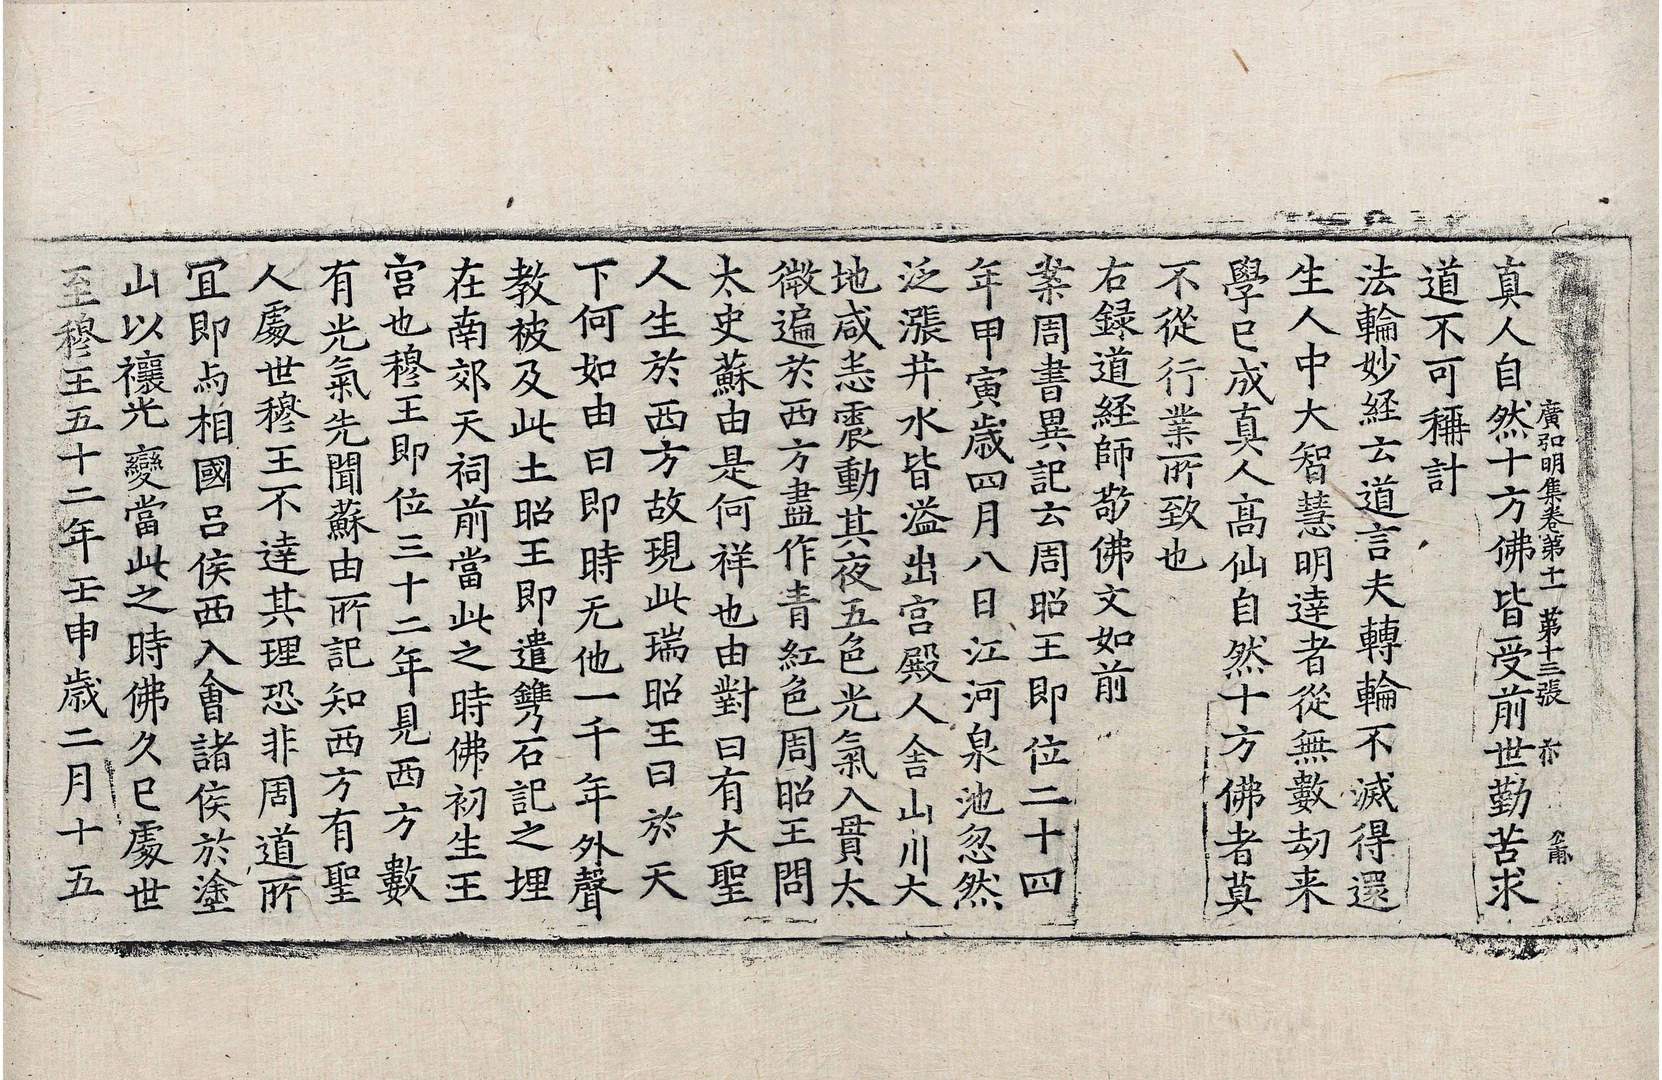 廣弘明集卷第十一 第十三張
真人自然十方佛皆受前世勤苦求
道不可稱計
法輪妙経云道言夫轉輪不滅得還
生人中大智慧明達者從無數劫来
學已成真人高仙自然十方佛者莫
不從行業所致也
右録道経師敬佛文如前
案周書異記云周昭王即位二十四
年甲寅歲四月八日江河泉池忽然
泛漲井水皆溢出宮殿人舍山川大
地咸悉震動其夜五色光氣入貫太
微遍於西方盡作青紅色周昭王問
太史蘇由是何祥也由對曰有大聖
人生於西方故現此瑞昭王曰於天
下何如由曰即時无他一千年外聲
教被及此土昭王即遣鐫石記之埋
在南郊天祠前當此之時佛初生王
宮也穆王即位三十二年見西方數
有光氣先聞蘇由所記知西方有聖
人處世穆王不達其理恐非周道所
冝即与相國吕侯西入會諸侯於塗
山以禳光變當此之時佛久已處世
至穆王五十二年壬申歲二月十五